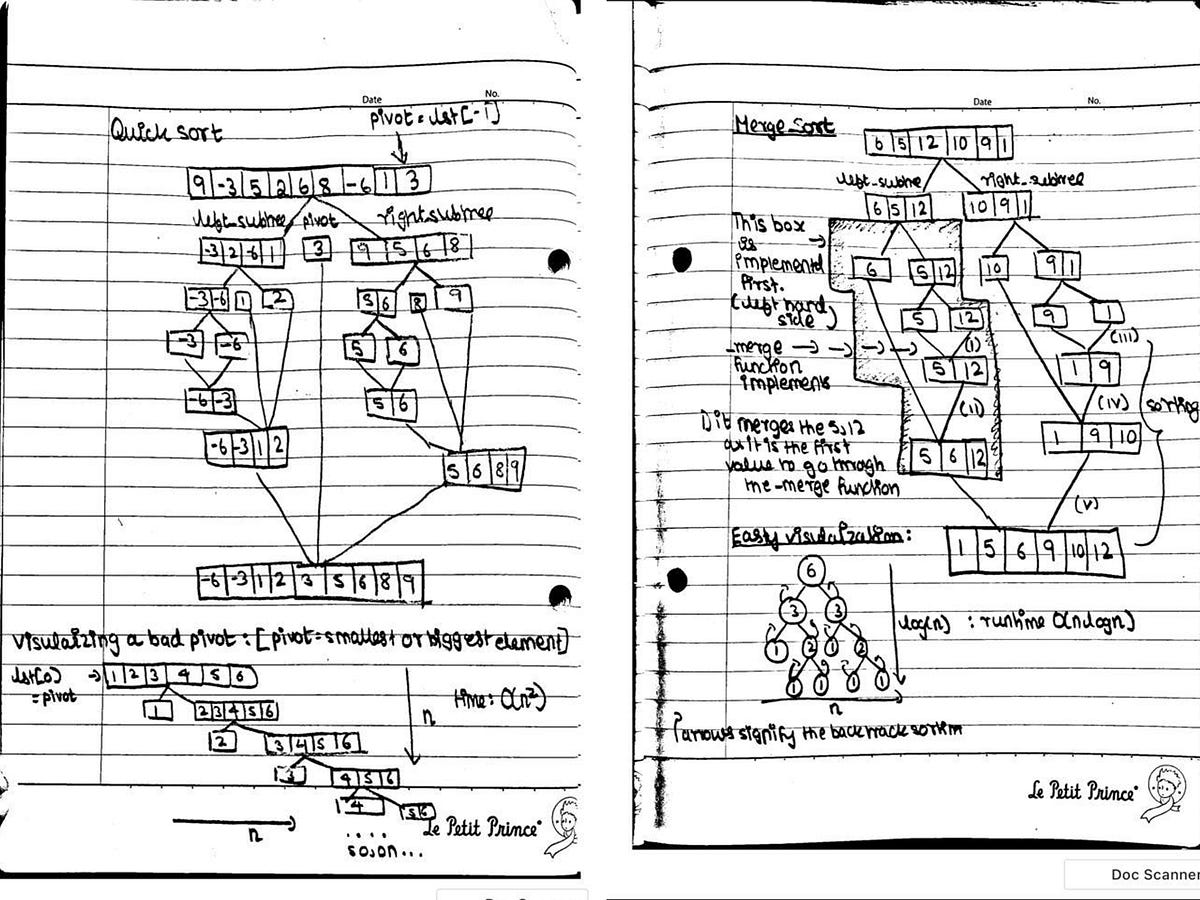 Date No.
Quick sort
pivot = lst[-1]
9 -3 5 2 6 8 -6 1 3
left_subtree pivot right_subtree
-3 2 -6 1 3 9 5 6 8
-3 -6 1 2 5 6 8 9
-3 -6 5 6
-6 -3 5 6
-6 -3 1 2 5 6 8 9
-6 -3 1 2 3 5 6 8 9
visualizing a bad pivot : [pivot = smallest or biggest element]
lst[0] → 1 2 3 4 5 6
= pivot
1 2 3 4 5 6
n time : O(n²)
2 3 4 5 6
3 4 5 6
4 5 6
n
....
so,on...
Le Petit Prince
Date No.
Merge Sort
6 5 12 10 9 1
left_subtree right_subtree
6 5 12 10 9 1
This box
is
implemented
first.
(left hand
side)
6 5 12 10 9 1
5 12 9 1
merge → → → → (i) (iii)
function
implements
5 12 1 9
(ii) (iv) sorting
1 9 10
it merges the 5,12
as it is the first
value to go through
the merge function
5 6 12
(v)
1 5 6 9 10 12
Easy visualization :
6
3 3
1 2 1 2
1 1 1 1
n
log(n) : runtime O(nlogn)
arrows signify the backtrack
Le Petit Prince
Doc Scanner